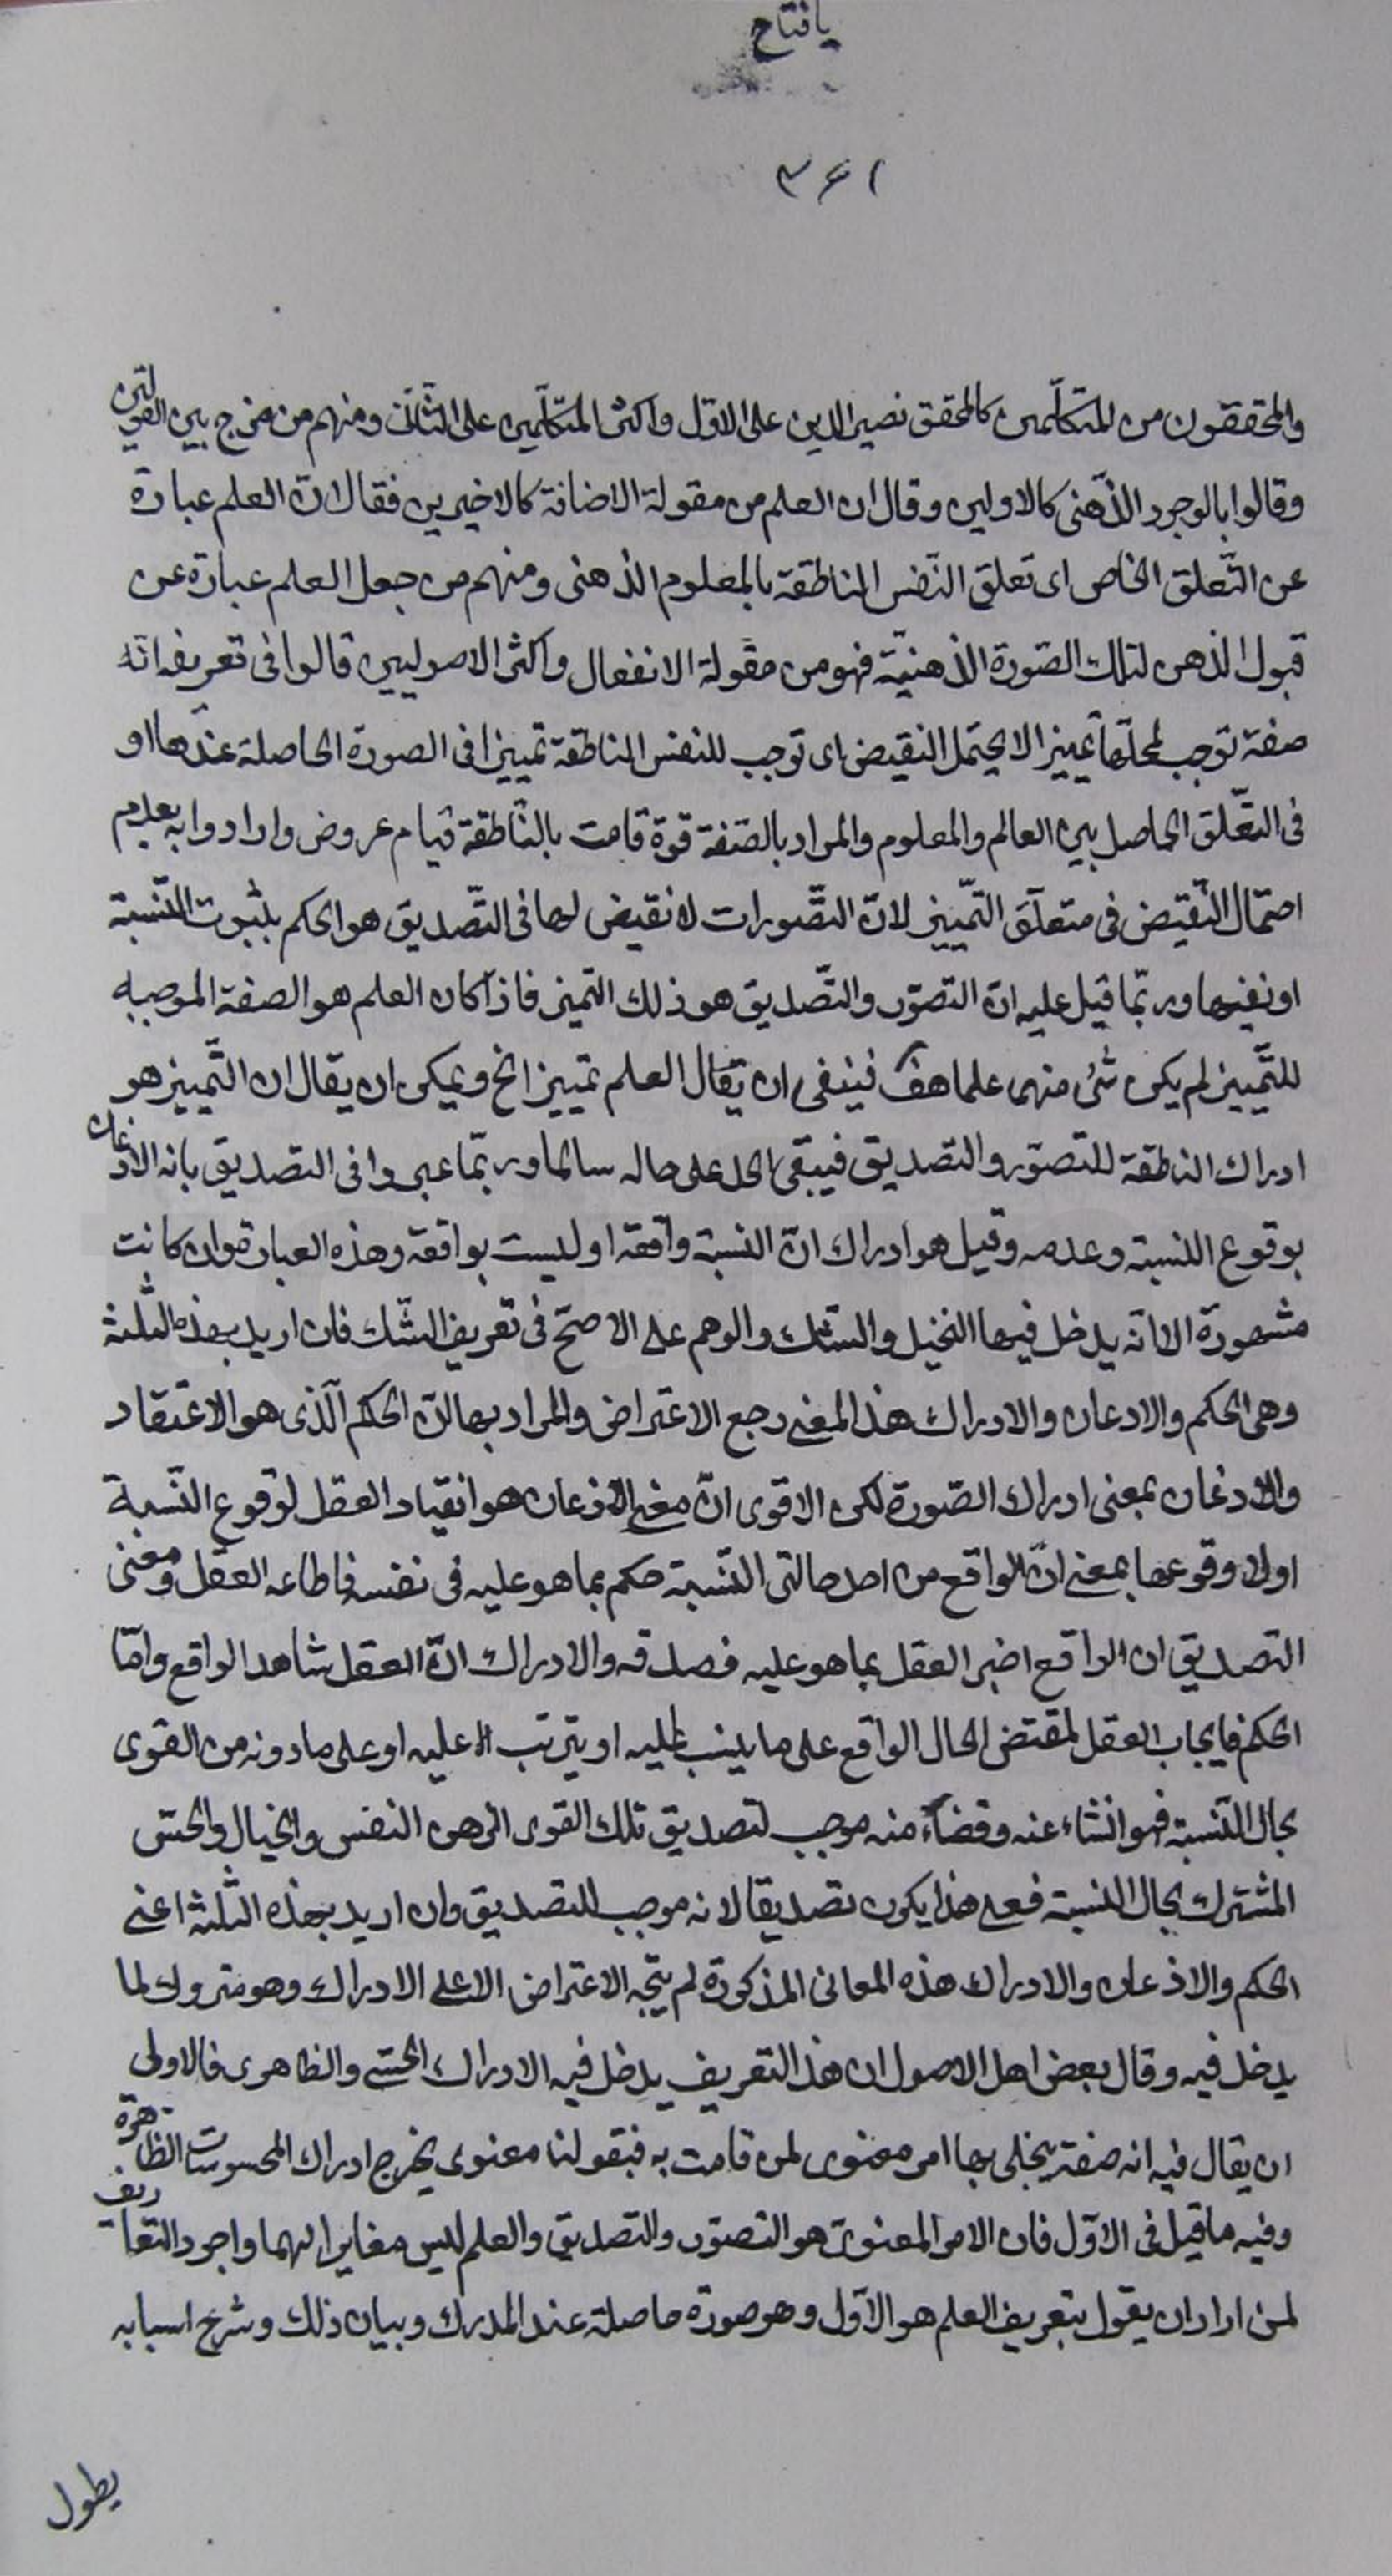 يافتاح
٣٤١
والمحققون من المتكلّمين كالمحقق نصير الدين على الاوّل واكثر المتكلّمين على الثانى ومنهم من مزج بين القولين
وقالوا بالوجود الذّهنى كالاولين وقال ان العلم من مقولة الاضافة كالاخيرين فقال انّ العلم عبارة
عن التّعلق الخاص اى تعلق النّفس الناطقة بالمعلوم الذهنى ومنهم من جعل العلم عبارة عن
قبول الذهن لتلك الصّورة الذهنيّة فهو من مقولة الانفعال واكثر الاصوليين قالوا فى تعريفه انّه
صفة توجب لمحلّها تمييزا لا يحتمل النقيض اى توجب للنفس الناطقة تمييزا فى الصورة الحاصلة عندها او
فى التعّلق الحاصل بين العالم والمعلوم والمراد بالصّفة قوة قامت بالنّاطقة قيام عروض وارادوا به بعدم
احتمال النّقيض فى متعلّق التّمييز لانّ التّصورات لا نقيض لها فى التّصديق هو الحكم بثبوت النّسبة
او نفيها وربّما قيل عليه انّ التصوّر والتّصديق هو ذلك التميز فاذا كان العلم هو الصفة الموجبه
للتّمييز لم يكن شئ منهما علما هف فينبغى ان يقال العلم تمييز الخ ويمكن ان يقال ان التّمييز هو
ادراك الناطقة للتصوّر والتصديق فيبقى الحد على حاله سالما وربّما عبروا فى التصديق بانه الاذعان
بوقوع النسبة وعدمه وقيل هو ادراك انّ النسبة واقعة او ليست بواقعة وهذه العبارة وان كانت
مشهورة الا انّه يدخل فيها التخيل والشك والوهم على الاصحّ فى تعريف الشّك فان اريد بهذه الثلثة
وهى الحكم والاذعان والادراك هذا المعنى رجع الاعتراض والمراد بها انّ الحكم الّذى هو الاعتقاد
والاذعان بمعنى ادراك الصّورة لكن الاقوى انّ معنى الاذعان هو انقياد العقل لوقوع النّسبة
اولا وقوعها بمعنى انّ الواقع من احد حالتى النّسبة حكم بما هو عليه فى نفسه فاطاعه العقل ومعنى
التصديق ان الواقع اخبر العقل بما هو عليه فصدقه والادراك انّ العقل شاهد الواقع وامّا
الحكم فايجاب العقل لمقتضى الحال الواقع على ما ينسب اليه او يترتب عليه او على ما دونه من القوى
بحال النّسبة فهو انشاء عنه وقضاء منه موجب لتصديق تلك القوى التى هى النفس والخيال والحسّ
المشترك بحال النسبة فعلى هذا يكون تصديقا لانه موجب للتصديق وان اريد بهذه الثلثة اعنى
الحكم والاذعان والادراك هذه المعانى المذكورة لم يتّجه الاعتراض الا على الادراك وهو متروك لما
يدخل فيه وقال بعض اهل الاصول ان هذا التعريف يدخل فيه الادراك الحسّى والظاهرى فالاولى
ان يقال فيه انه صفة يتجلى بها امر معنوى لمن قامت به فبقولنا معنوى يخرج ادراك المحسوسات الظاهرة
وفيه ما قيل فى الاوّل فان الامر المعنوىّ هو التصوّر والتصديق والعلم ليس مغايرا لهما واجود التعاريف
لمن اراد ان يقول بتعريف العلم هو الاوّل وهو صورة حاصلة عند المدرك وبيان ذلك وشرح اسبابه
يطول